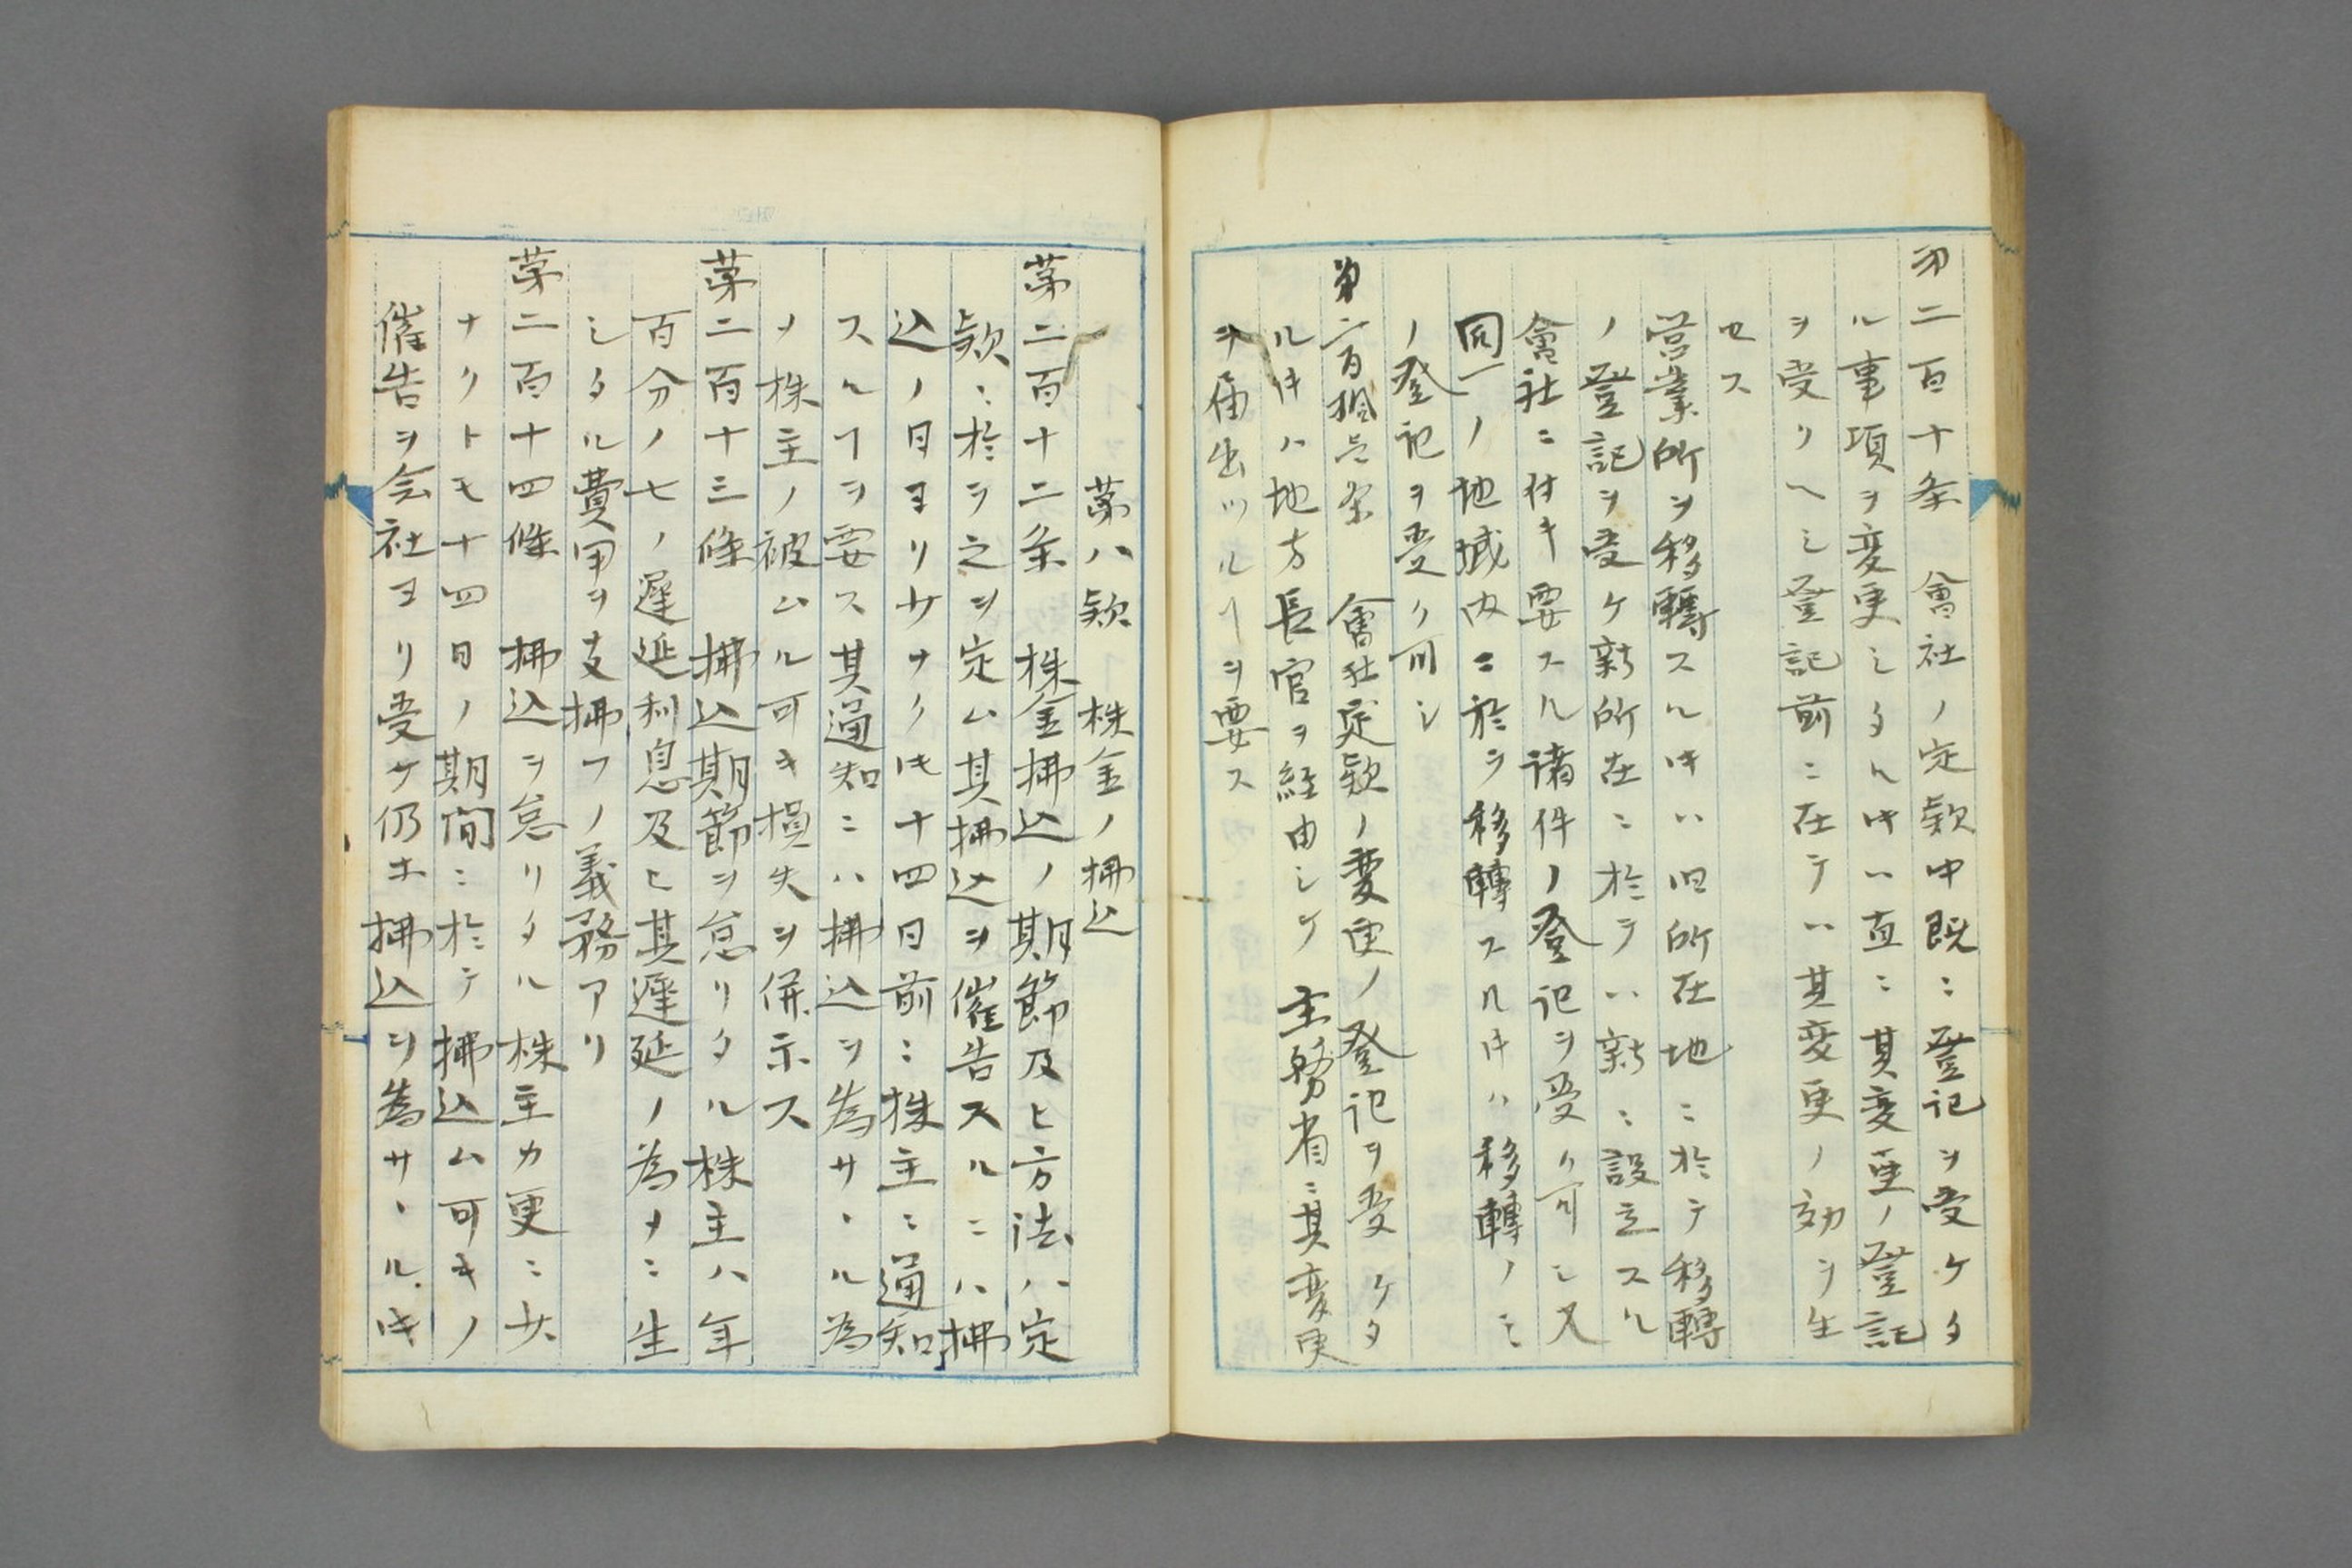 第二百十条　會社ノ定款中既ニ登記ヲ受ケタ
ル事項ヲ変更シタルㇳキハ直ニ其変更ノ登記
ヲ受クヘシ登記前ニ在テハ其変更ノ効ヲ生
セス
営業所ヲ移轉スルㇳキハ旧所在地ニ於テ移轉
ノ登記ヲ受ケ新所在ニ於テハ新ニ設立スル
會社ニ付キ要スル諸件ノ登記ヲ受ク可シ又
同一ノ地域内ニ於テ移轉スルㇳキハ移轉ノミ
ノ登記ヲ受ク可シ
第二百拾壱条　會社定款ノ変更ノ登記ヲ受ケタ
ルㇳキハ地方長官ヲ経由シテ主務省ニ其変更
ヲ届出ツルヿヲ要ス
第八款　株金ノ拂込
第二百十二条　株金拂込ノ期節及ヒ方法ハ定
款ニ於テ之ヲ定ム其拂込ヲ催告スルニハ拂
込ノ日ヨリ少ナクㇳモ十四日前ニ株主ニ通知
スルヿヲ要ス其通知ニハ拂込ヲ為サヽル為
ノ株主ノ被ムル可キ損失ヲ併示ス
第二百十三條　拂込期節ヲ怠リタル株主ハ年
百分ノ七ノ遅延利息及ヒ其遅延ノ為メニ生
シタル費用ヲ支拂フノ義務アリ
第二百十四條　拂込ヲ怠リタル株主カ更ニ少
ナクトモ十四日ノ期間ニ於テ拂込ム可キノ
催告ヲ会社ヨリ受ケ仍ホ拂込ヲ為サヽルㇳキ